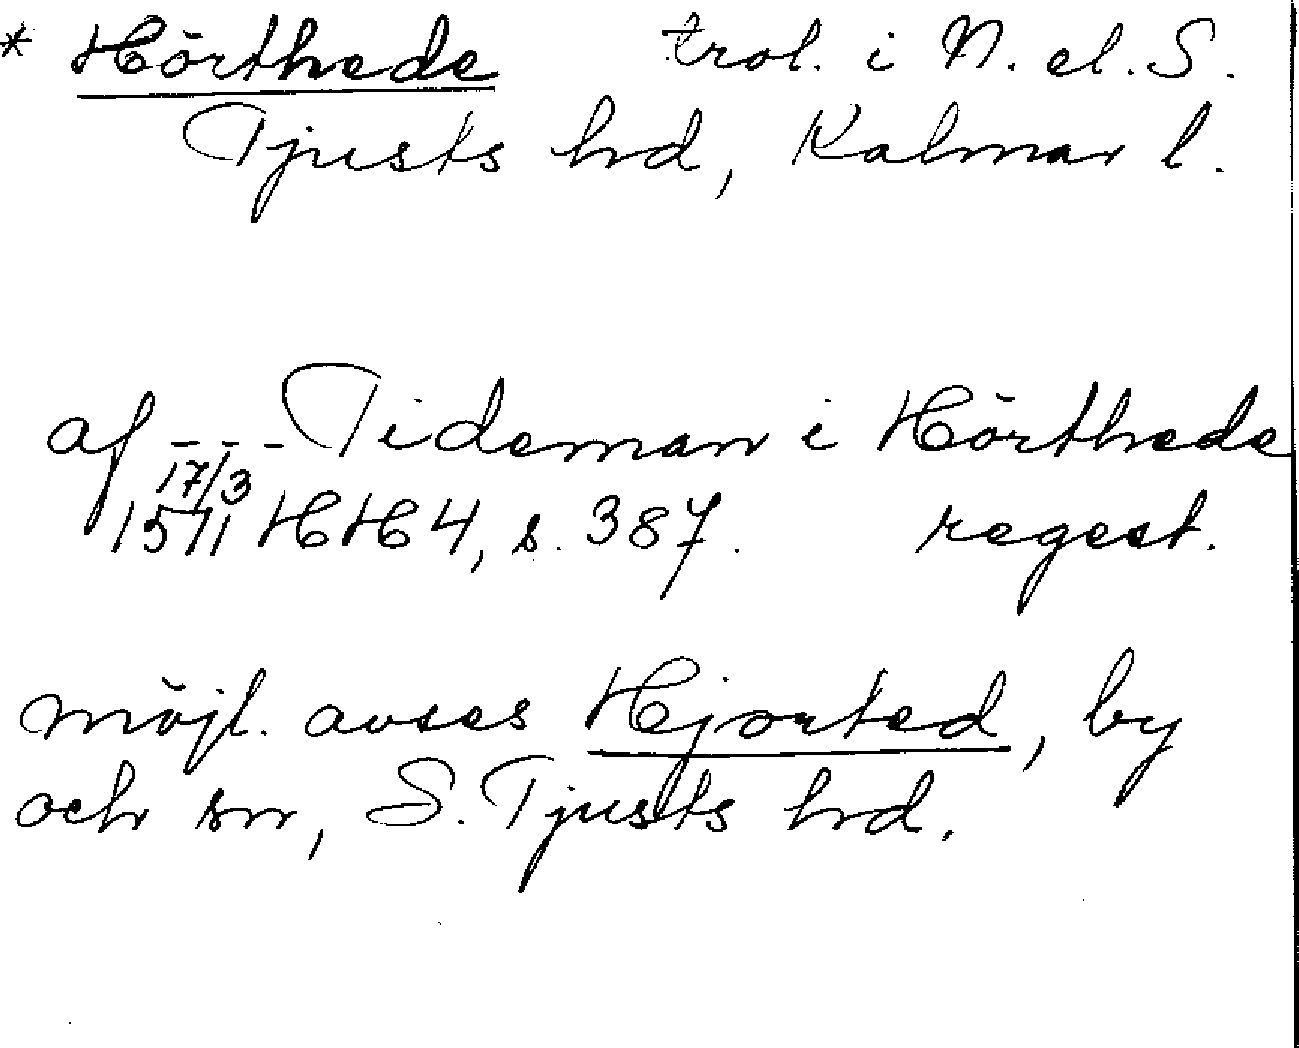 * Hörthede trol. i N. el. S.
Tjusts hd, Kalmar l.
af --- Tideman i Hörthede
17/3
1571 HH 4, s. 387. regest.
möjl. avses Hjorted, by
och sn, S. Tjusts hd.